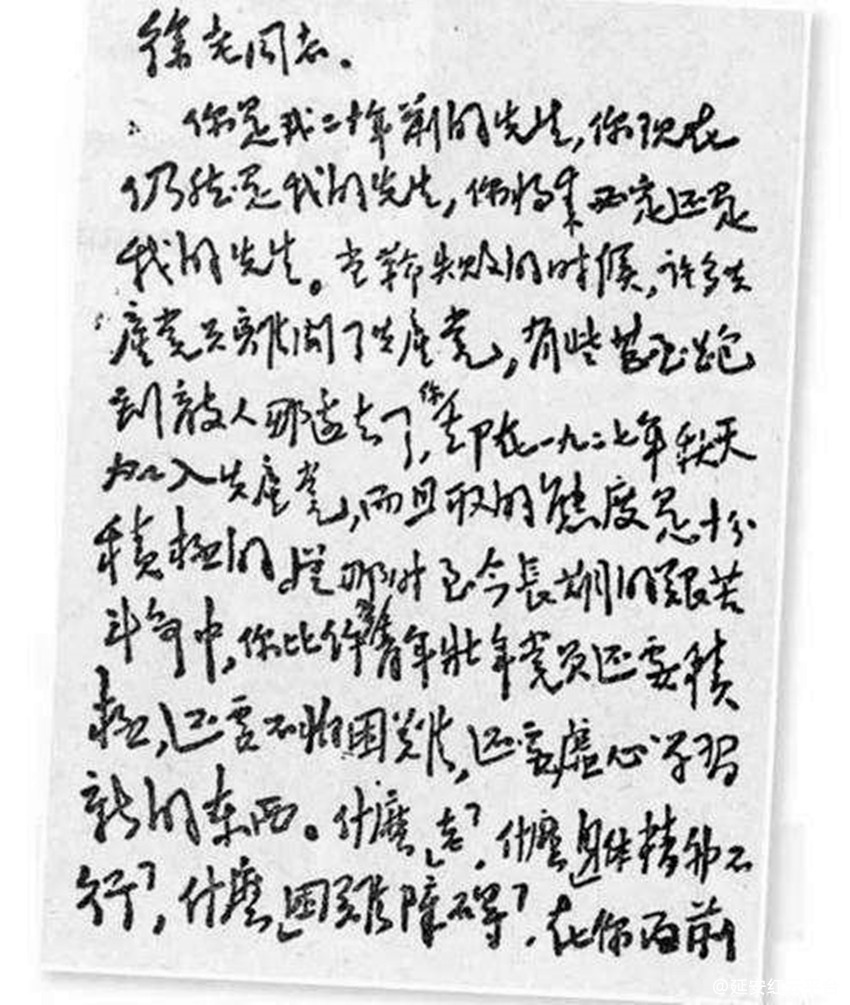 徐老同志：
你是我二十年前的先生，你现在
仍然是我的先生，你将来必定还是
我的先生。当革命失败的时候，许多共
产党员離開了共产党，有些甚至跑
到敌人那边去了，你却在一九二七年秋天
加入共产党，而且取的態度是十分
積极的。從那时至今長期的艱苦
斗争中，你比许多青年壮年党员还要積
极，还要不怕困难，还要虚心学习
新的东西。什麼「老」，什麼「身体精神不
行」，什麼「困難障碍」，在你面前